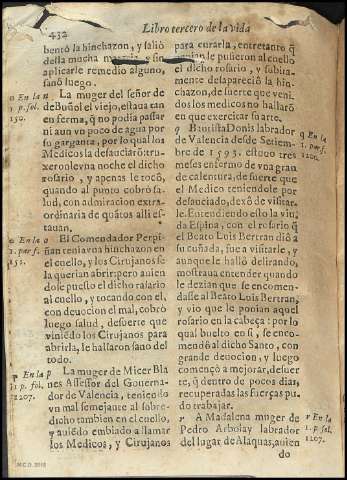 432
Libro tercero de la vida
bentó la hinchazon, y salió
della mucha materia, y sin
aplicarle remedio alguno,
sanò luego.
La muger del señor de
de Buñol el viejo, estaua tan
en ferma, q̃ no podia passar
ni aun vn poco de agua por
su garganta, por lo qual los
Medicos la desauciarõ: tru-
xeronle vna noche el dicho
rosario, y apenas le tocò,
quando al punto cobrò sa-
lud, con admiracion extra-
ordinaria de quãtos alli es-
tauan.
El Comendador Perpi-
ñan tenia vna hinchazon en
el cuello, y los Cirujanos se
la querian abrir: pero auien
dole puesto el dicho rosario
al cuello, y tocando con el,
con deuocion el mal, cobrò
luego salud, desuerte que
viniẽdo los Cirujanos para
abrirla, le hallaron sano del
todo.
La muger de Micer Bla
nes Assessor del Gouerna-
dor de Valencia, teniẽdo
vn mal semejante al sobre-
dicho tambien en el cuello,
y auiẽdo embiado a llamar
los Medicos, y Cirujanos
o En la n
1. p. fol.
150.
o En la o
1. par. f.
152.
p En la p
1. p. fol.
1207.
para curarla, entretanto q̃
venian le pusieron al cuello
el dicho rosario, y subita-
mente desapareciò la hin-
chazon, de suerte que veni
dos los medicos no hallarõ
en que exercitar su arte.
q Bautista Donis labrador
de Valencia desde Setiem-
bre de 1593. estuuo tres
meses enfermo de vna gran
de calentura, de suerte que
el Medico teniendole por
desauciado, dexò de visitar.
le. Entendiendo esto la viu
da Espina, con el rosario q̃
el Beato Luis Bertran diò a
su cuñada, fue a visitarle, y
aunque le hallò delirando,
mostraua entender quando
le dezian que se encomen-
dasse al Beato Luis Bertran,
y vio que le ponian aquel
rosario en la cabeça: por lo
qual buelto en si, se enco-
mendò al dicho Santo, con
grande deuocion, y luego
començò a mejorar, desuer
te, q̃ dentro de pocos dias,
recuperadas las fuerças pu-
do trabajar.
r A Madalena muger de
Pedro Arbolay labrador
del lugar de Alaquas, auien
do
q En la
1. par. f.
1201.
r En la
1. p. fol.
1207.
M.C.D. 2018